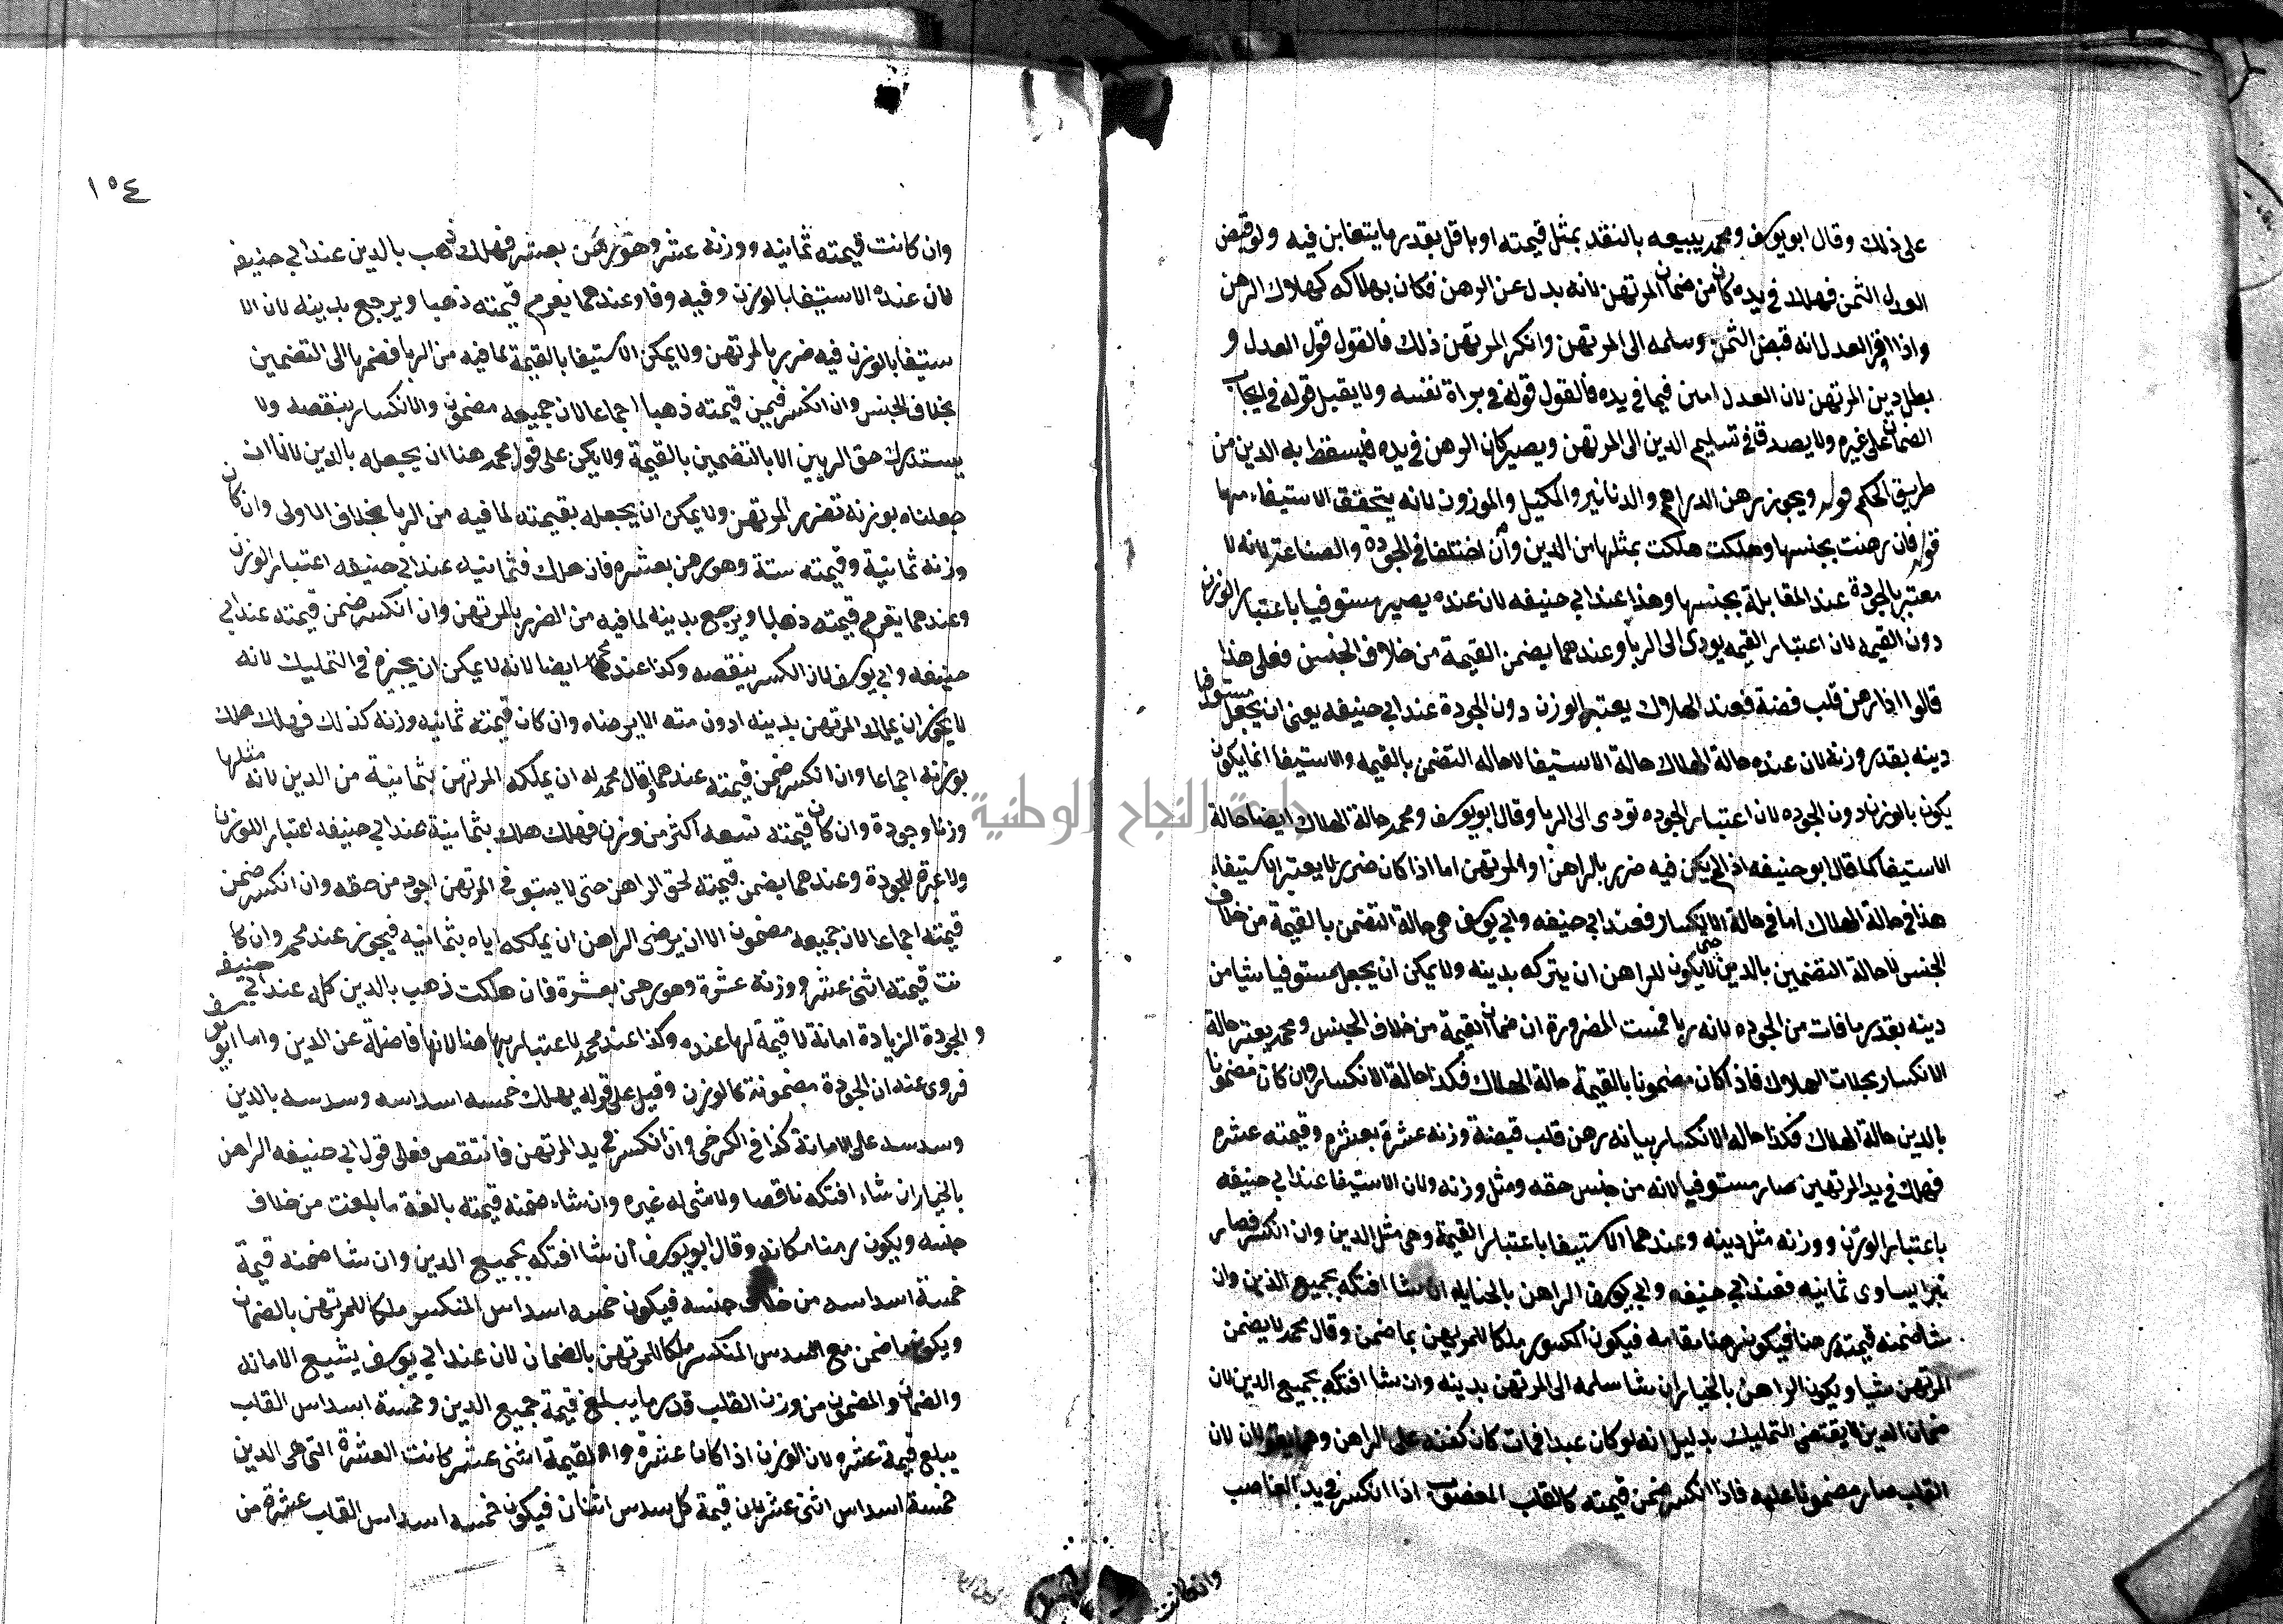 على ذلك وقال ابو يوسف ومحمد يبيعه بالنقد بمثل قيمته او باقل بقدر ما يتغابن فيه ولو قبض
العدل الثمن فهلك في يده كان من ضمان المرتهن لانه بدل عن الرهن فكان هلاكه كهلاك الرهن
واذا اقر العدل انه قبض الثمن وسلمه الى المرتهن وانكر المرتهن ذلك فالقول قول العدل و
بطل دين المرتهن لان العدل امين فيما في يده فالقول قوله في براة نفسه ولا يقبل قوله في ايجاب
الضمان على غيره ولا يصدق في تسليم الدين الى المرتهن ويصير كان الرهن في يده فيسقط به الدين من
طريق الحكم قوله ويجوز رهن الدراهم والدنانير والمكيل والموزون لانه يتحقق الاستيفاء منها
قوله فان رهنت بجنسها وهلكت هلكت بمثلها من الدين وان اختلفا في الجوده والصناعة لانه لا
معتبر بالجودة عند المقابلة بجنسها وهذا عند ابي حنيفه لان عنده يصير مستوفيا باعتبار الوزن
دون القيمه لان اعتبار القيمه يودى الى الربا وعندهما يضمن القيمة من خلاف الجنس فعلى هذا
قالوا اذا رهن قلب فضة فعند الهلاك يعتبر الوزن دون الجودة عند ابي حنيفه يعنى ان يجعل مستوفيا
دينه بقدر وزنه لان عنده حالة الهلاك حالة الاستيفا لا حاله التضمن بالقيمه والاستيفا انما يكون
يكون بالوزن دون الجوده لان اعتبار الجوده تودى الى الربا وقال ابو يوسف ومحمد حالة الهلاك ايضا حالة
الاستيفا كما قال ابو حنيفه اذا لم يكن فيه ضرر بالراهن او المرتهن اما اذا كان ضرر لا يعتبر الاستيفاء
هذا في حالة الهلاك اما في حالة الانكسار فعند ابي حنيفه وابي يوسف هى حالة التضمن بالقيمة من خلاف
الجنس لا حالة التضمين بالدين حتى لا يكون للراهن ان يتركه بدينه ولا يمكن ان يجعل مستوفيا شيا من
دينه بقدر ما فات من الجوده لانه ربا فمست الضرورة ان ضمان القيمة من خلاف الجنس ومحمد يعتبر حالة
الانكسار بحالت الهلاك فاذا كان مضمونا بالقيمة حالة الهلاك فكذا حالة الانكسار وان كان مضمونا
بالدين حالة الهلاك فكذا حاله الانكسار بيانه رهن قلب فضة وزنه عشرة بعشره وقيمته عشره
فهلك في يد المرتهن صار مستوفيا لانه من جنس حقه ومثل وزنه ولان الاستيفا عند ابي حنيفه
باعتبار الوزن ووزنه مثل دينه وعندهما الاستيفا باعتبار القيمة وهى مثل الدين وان انكسر فصار
تبرا يساوى ثمانيه فعند ابي حنيفه وابي يوسف الراهن بالخيار ان شا افتكه بجميع الدين وان
شا ضمنه قيمته رهنا فيكون رهنا مقامه فيكون المكسور ملكا للمرتهن بما ضمن وقال محمد لا يضمن
المرتهن شيا ويكون الراهن بالخيار ان شا سلمه الى المرتهن بدينه وان شا افتكه بجميع الدين لان
ضمان الدين لا يقتضى التمليك بدليل انه لو كان عبدا فمات كان كفنه على الراهن وهما يقولان لان
القلب صار مضمونا عليه فاذا انكسر ضمن قيمته كالقلب المغصوب اذا انكسر في يد الغاصب
وان كانت
١٥٤
وان كانت قيمته ثمانيه ووزنه عشر وهو رهن بعشر فهلك ذهب بالدين عند ابي حنيفه
لان عنده الاستيفا بالوزن وفيه وفا وعندهما يغرم قيمته ذهبا ويرجع بدينه لان الا
ستيفا بالوزن فيه ضرر بالمرتهن ولا يمكن الاستيفا بالقيمة لما فيه من الربا فضربا الى التضمين
بخلاف الجنس وان انكسر فيمن قيمته ذهبا اجماعا لان جميعه مضمون والانكسار ينقصه ولا
يستدرك حق الربين الا بالتضمين بالقيمة ولا يمكن على قول محمد هنا ان يجعله بالدين لانا ان
جعلناه بوزنه تضرر المرتهن ولا يمكن ان يجعله بقيمته لما فيه من الربا بخلاف الاولى وان كان
وزنه ثمانية وقيمته ستة وهو رهن بعشره فان هلك فثمانيه عند ابي حنيفه اعتبار الوزن
وعندهما يغرم قيمته ذهبا ويرجع بدينه لما فيه من الضرر بالمرتهن وان انكسر ضمن قيمته عند ابي
حنيفه وابي يوسف لان الكسر ينقصه وكذا عند محمد ايضا لانه لا يمكن ان يجيزه في التمليك لانه
لا يجوز ان يملك المرتهن بدينه ادون منه الا برضاه وان كان قيمته ثمانيه وزنه كذلك فهلك هلك
بوزنه اجماعا وان انكسر ضمن قيمته عندهما وقال محمد له ان يملكه المرتهن بثمانية من الدين لانه مثلها
وزنا وجودة وان كان قيمته تسعه اكثر من وزن فهلك هلك بثمانية عند ابي حنيفه اعتبار اللوزن
ولا عبرة للجودة وعندهما يضمن قيمته لحق الراهن حتى لا يستوفي المرتهن اجود من حقه وان انكسر ضمن
قيمته اجماعا لان جميعه مضمون الا ان يرضى الراهن ان يملكه اياه بثمانيه فيجوز عند محمد وان كا
نت قيمته اثنى عشر ووزنه عشرة وهو رهن بعشرة فان هلكت ذهب بالدين كله عند ابي حنيفه
و الجودة الزيادة امانة لا قيمة لها عنده وكذا عند محمد لا اعتبار بها هنا لانها فاضلة عن الدين واما ابو يوسف
فروى عنه ان الجودة مضمونة كالوزن وقيل على قوله يهلك خمسه اسداسه وسدسه بالدين
وسدسه على الامانة كذا في الكرخي وان انكسر في يد المرتهن فانتقص فعلى قول ابي حنيفه الراهن
بالخيار ان شاء افتكه ناقصا ولا شى له غيره وان شاء ضمنه قيمته بالغة ما بلغت من خلاف
جنسه ويكون رهنا مكانه وقال ابو يوسف ان شا افتكه بجميع الدين وان شا ضمنه قيمة
خمسة اسداسه من خلاف جنسه فيكون خمسه اسداس المنكسر ملكا للمرتهن بالضمان
ويكون ما ضمن مع السدس المنكسر ملكا للمرتهن بالضمان لان عند ابي يوسف يشيع الامانه
والضمان والمضمون من وزن القلب قدر ما يبلغ قيمة جميع الدين وخمسة اسداس القلب
يبلغ قيمة عشره لان الوزن اذا كان عشرة والقيمة اثنى عشر كانت العشرة التى هى الدين
خمسة اسداس اثنى عشر بان قيمة كل سدس اثنان فيكون خمسه اسداس القلب عشرة من
جامعة النجاح الوطنية